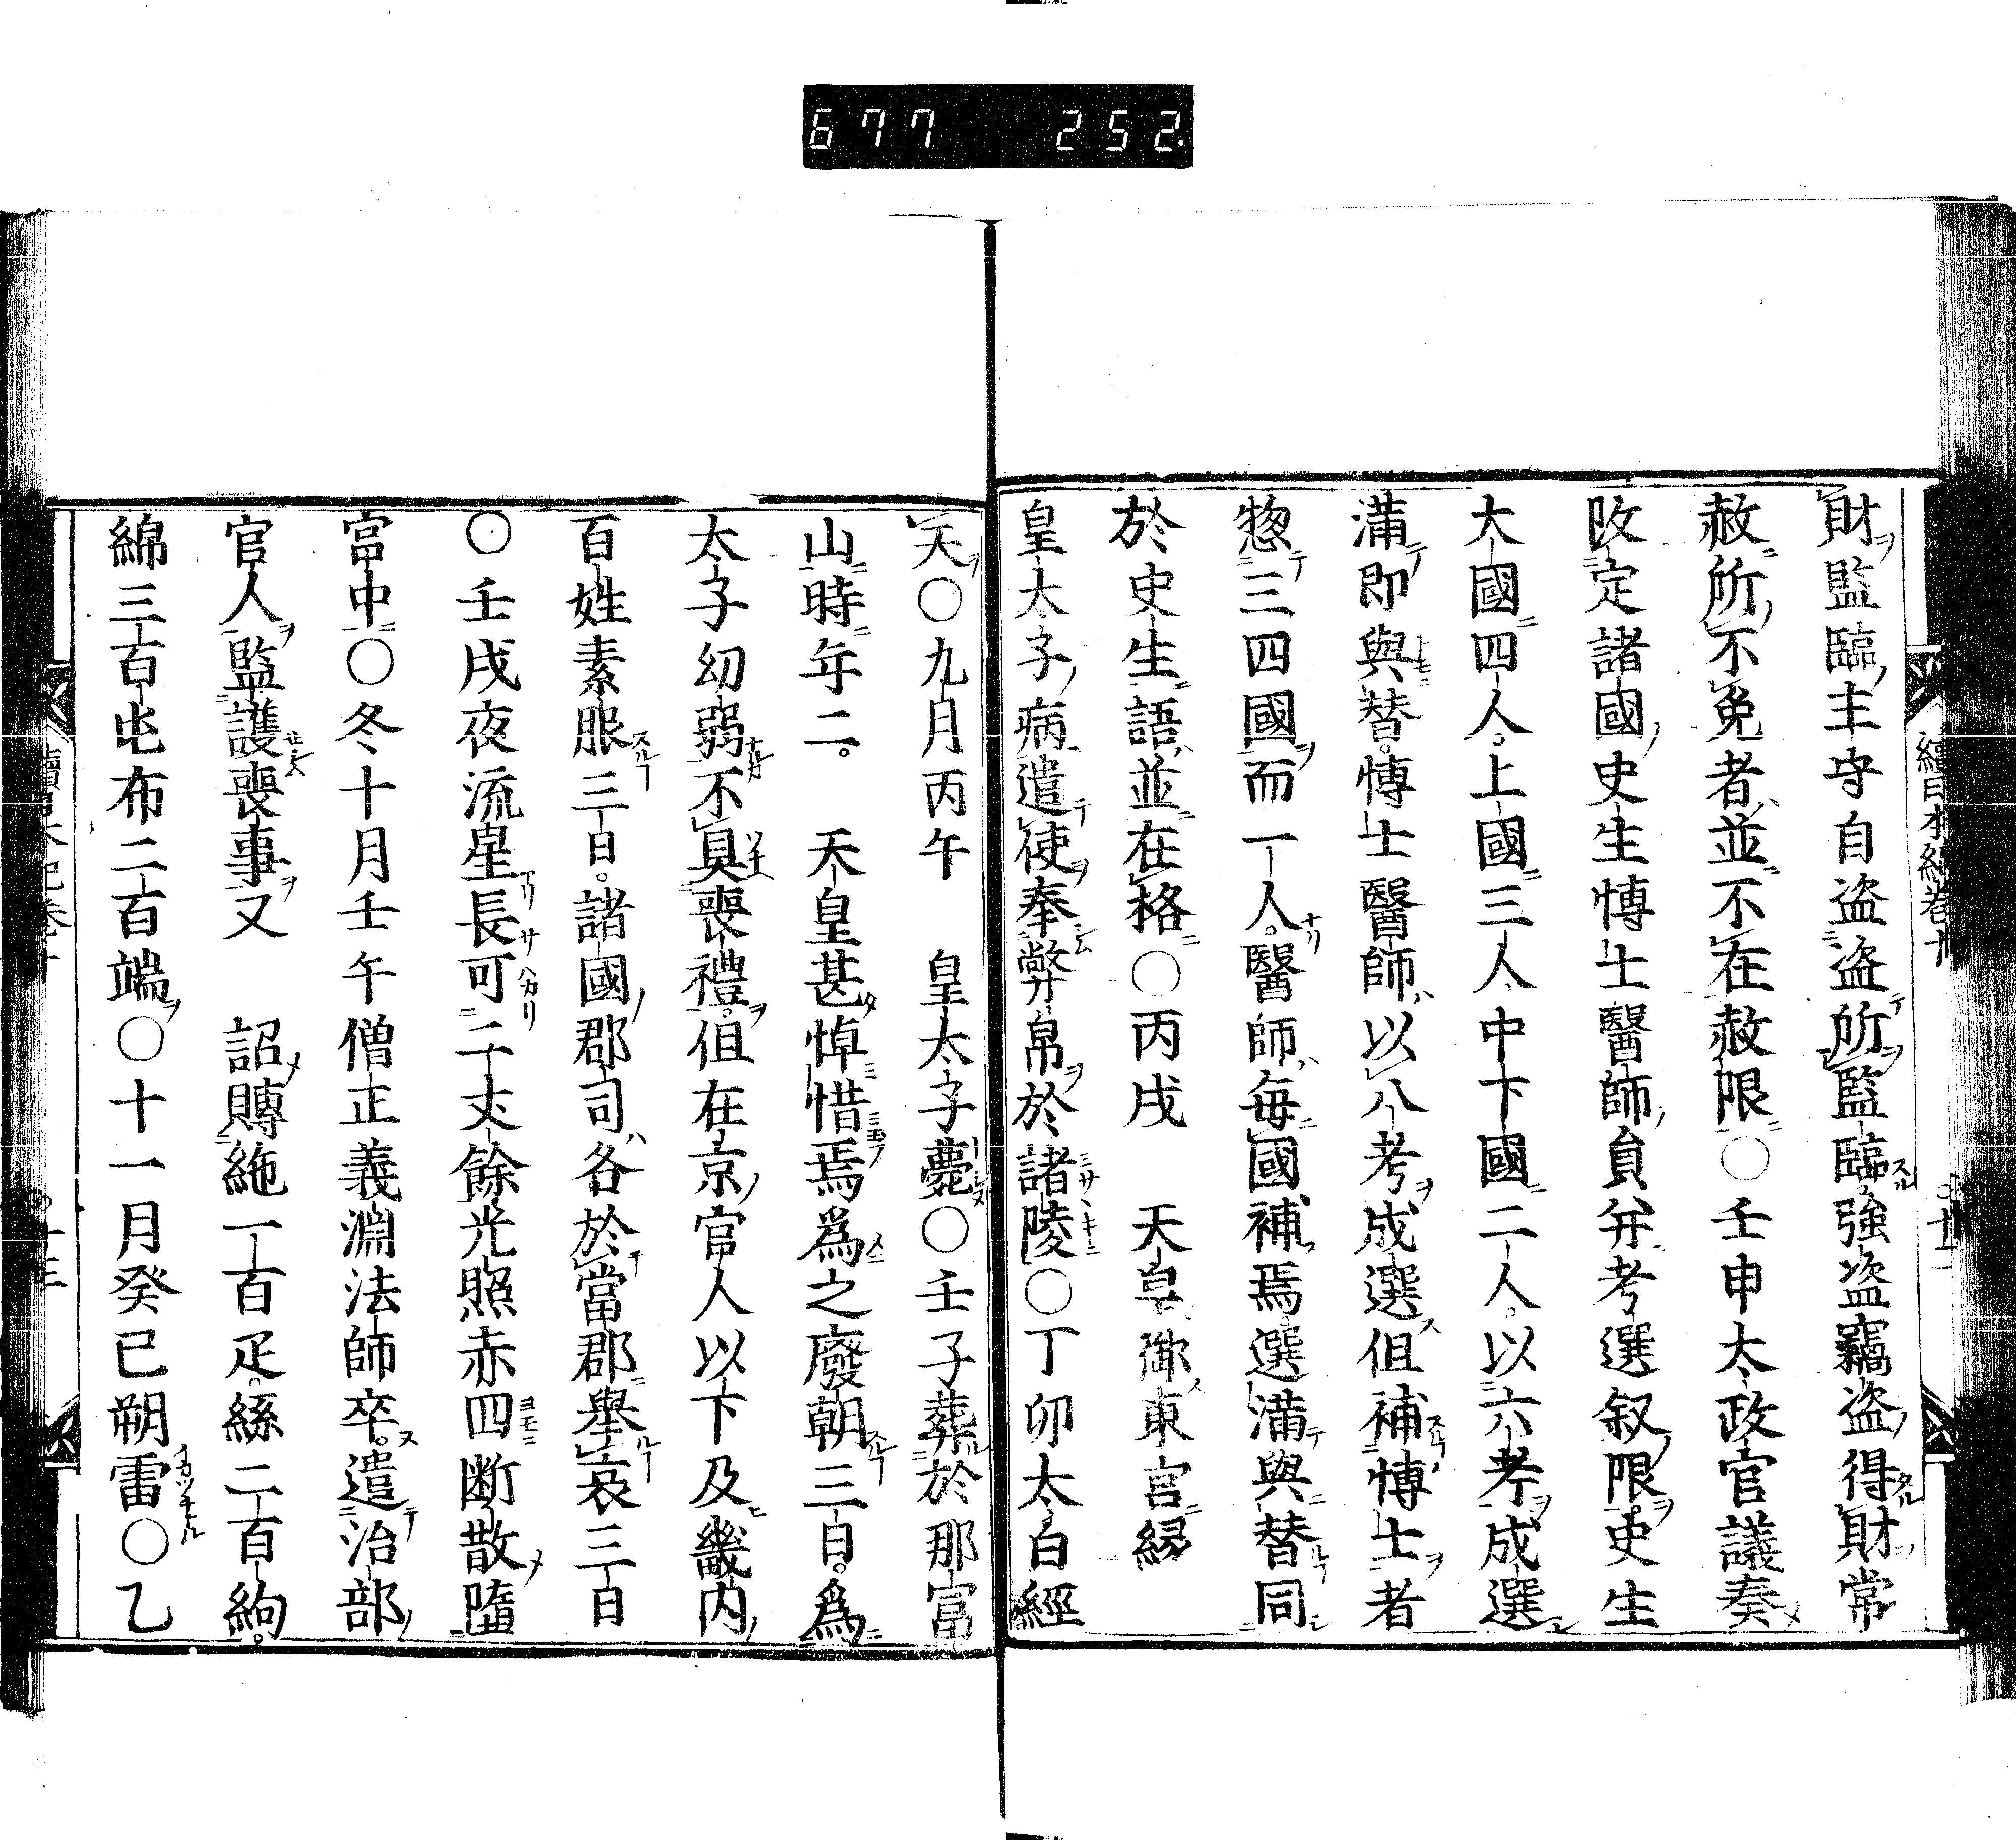 677 252.
財監臨主守自盗盗所監臨強盗竊盗得財常
赦所不免者並不在赦限〇壬申太政官議奏
改定諸國史生博士醫師員并考選叙限史生
大國四人上國三人中下國二人以六考成選
滿即與替博士醫師以八考成選但補博士者
惣三四國而一人醫師每國補焉選滿與替同
於史生語並在格〇丙戌　天皇御東宮緣
皇太子病遣使奉幣帛於諸陵〇丁卯太白經
天〇九月丙午　皇太子薨〇壬子葬於那富
山時年二。　天皇甚悼惜焉爲之廢朝三日。爲
太子幼弱不具喪禮。但在京官人以下及畿内
百姓素服三日。諸國郡司各於當郡舉哀三日
〇壬戌夜流星長可二丈餘光照赤四断散墮
宮中〇冬十月壬午僧正義淵法師卒。遣治部
官人監護喪事又　詔賻絁一百疋。絲二百絇。
綿三百屯布二百端〇十一月癸巳朔雷〇乙